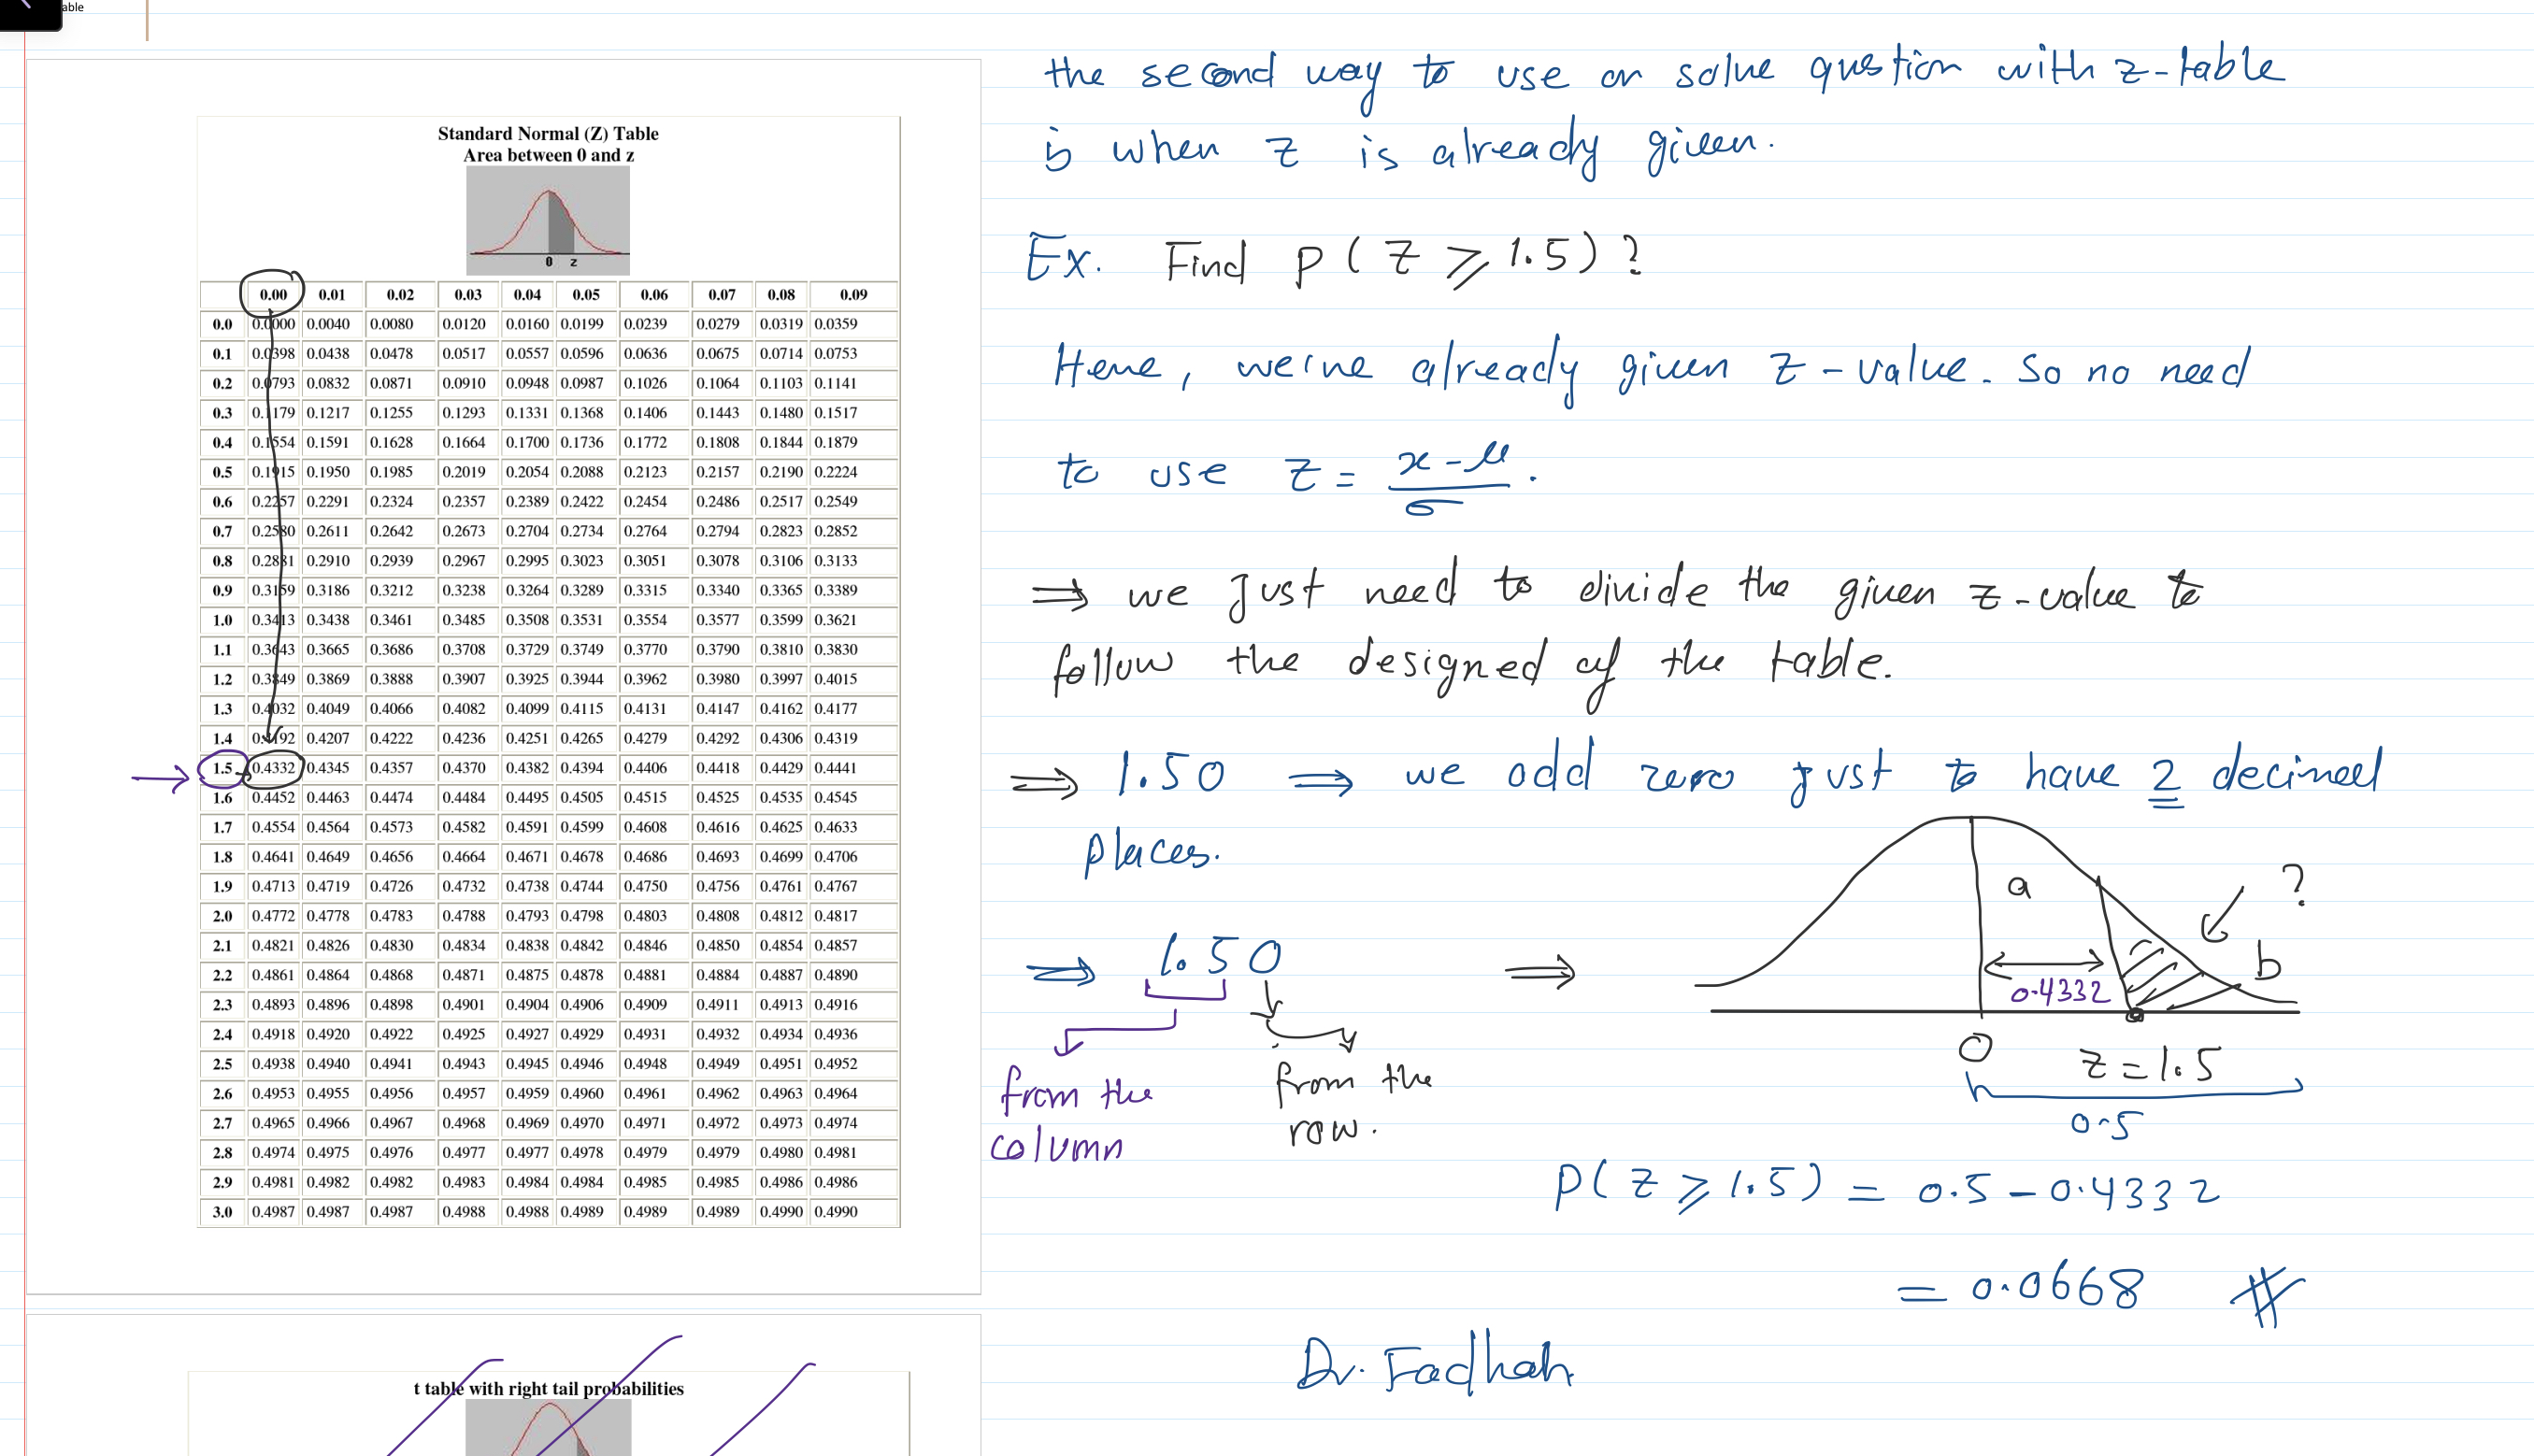 able
Standard Normal (Z) Table
Area between 0 and z
0 z
0.00 0.01 0.02 0.03 0.04 0.05 0.06 0.07 0.08 0.09
0.0 0.0000 0.0040 0.0080 0.0120 0.0160 0.0199 0.0239 0.0279 0.0319 0.0359
0.1 0.0398 0.0438 0.0478 0.0517 0.0557 0.0596 0.0636 0.0675 0.0714 0.0753
0.2 0.0793 0.0832 0.0871 0.0910 0.0948 0.0987 0.1026 0.1064 0.1103 0.1141
0.3 0.1179 0.1217 0.1255 0.1293 0.1331 0.1368 0.1406 0.1443 0.1480 0.1517
0.4 0.1554 0.1591 0.1628 0.1664 0.1700 0.1736 0.1772 0.1808 0.1844 0.1879
0.5 0.1915 0.1950 0.1985 0.2019 0.2054 0.2088 0.2123 0.2157 0.2190 0.2224
0.6 0.2257 0.2291 0.2324 0.2357 0.2389 0.2422 0.2454 0.2486 0.2517 0.2549
0.7 0.2580 0.2611 0.2642 0.2673 0.2704 0.2734 0.2764 0.2794 0.2823 0.2852
0.8 0.2881 0.2910 0.2939 0.2967 0.2995 0.3023 0.3051 0.3078 0.3106 0.3133
0.9 0.3159 0.3186 0.3212 0.3238 0.3264 0.3289 0.3315 0.3340 0.3365 0.3389
1.0 0.3413 0.3438 0.3461 0.3485 0.3508 0.3531 0.3554 0.3577 0.3599 0.3621
1.1 0.3643 0.3665 0.3686 0.3708 0.3729 0.3749 0.3770 0.3790 0.3810 0.3830
1.2 0.3849 0.3869 0.3888 0.3907 0.3925 0.3944 0.3962 0.3980 0.3997 0.4015
1.3 0.4032 0.4049 0.4066 0.4082 0.4099 0.4115 0.4131 0.4147 0.4162 0.4177
1.4 0.4192 0.4207 0.4222 0.4236 0.4251 0.4265 0.4279 0.4292 0.4306 0.4319
1.5 0.4332 0.4345 0.4357 0.4370 0.4382 0.4394 0.4406 0.4418 0.4429 0.4441
1.6 0.4452 0.4463 0.4474 0.4484 0.4495 0.4505 0.4515 0.4525 0.4535 0.4545
1.7 0.4554 0.4564 0.4573 0.4582 0.4591 0.4599 0.4608 0.4616 0.4625 0.4633
1.8 0.4641 0.4649 0.4656 0.4664 0.4671 0.4678 0.4686 0.4693 0.4699 0.4706
1.9 0.4713 0.4719 0.4726 0.4732 0.4738 0.4744 0.4750 0.4756 0.4761 0.4767
2.0 0.4772 0.4778 0.4783 0.4788 0.4793 0.4798 0.4803 0.4808 0.4812 0.4817
2.1 0.4821 0.4826 0.4830 0.4834 0.4838 0.4842 0.4846 0.4850 0.4854 0.4857
2.2 0.4861 0.4864 0.4868 0.4871 0.4875 0.4878 0.4881 0.4884 0.4887 0.4890
2.3 0.4893 0.4896 0.4898 0.4901 0.4904 0.4906 0.4909 0.4911 0.4913 0.4916
2.4 0.4918 0.4920 0.4922 0.4925 0.4927 0.4929 0.4931 0.4932 0.4934 0.4936
2.5 0.4938 0.4940 0.4941 0.4943 0.4945 0.4946 0.4948 0.4949 0.4951 0.4952
2.6 0.4953 0.4955 0.4956 0.4957 0.4959 0.4960 0.4961 0.4962 0.4963 0.4964
2.7 0.4965 0.4966 0.4967 0.4968 0.4969 0.4970 0.4971 0.4972 0.4973 0.4974
2.8 0.4974 0.4975 0.4976 0.4977 0.4977 0.4978 0.4979 0.4979 0.4980 0.4981
2.9 0.4981 0.4982 0.4982 0.4983 0.4984 0.4984 0.4985 0.4985 0.4986 0.4986
3.0 0.4987 0.4987 0.4987 0.4988 0.4988 0.4989 0.4989 0.4989 0.4990 0.4990
t table with right tail probabilities
the second way to use or solve question with z-table
is when z is already given.
Ex. Find P(Z ⩾ 1.5)?
Here, we're already given z-value. So no need
to use z = x-μ / σ.
⇒ we just need to divide the given z-value to
follow the designed of the table.
⇒ 1.50 ⇒ we add zero just to have 2 decimal
places.
⇒ 1.50 ⇒
from the
column
from the
row.
a
?
b
0.4332
0
z=1.5
0.5
P(Z ⩾ 1.5) = 0.5 - 0.4332
= 0.0668 #
Dr. Fadhah